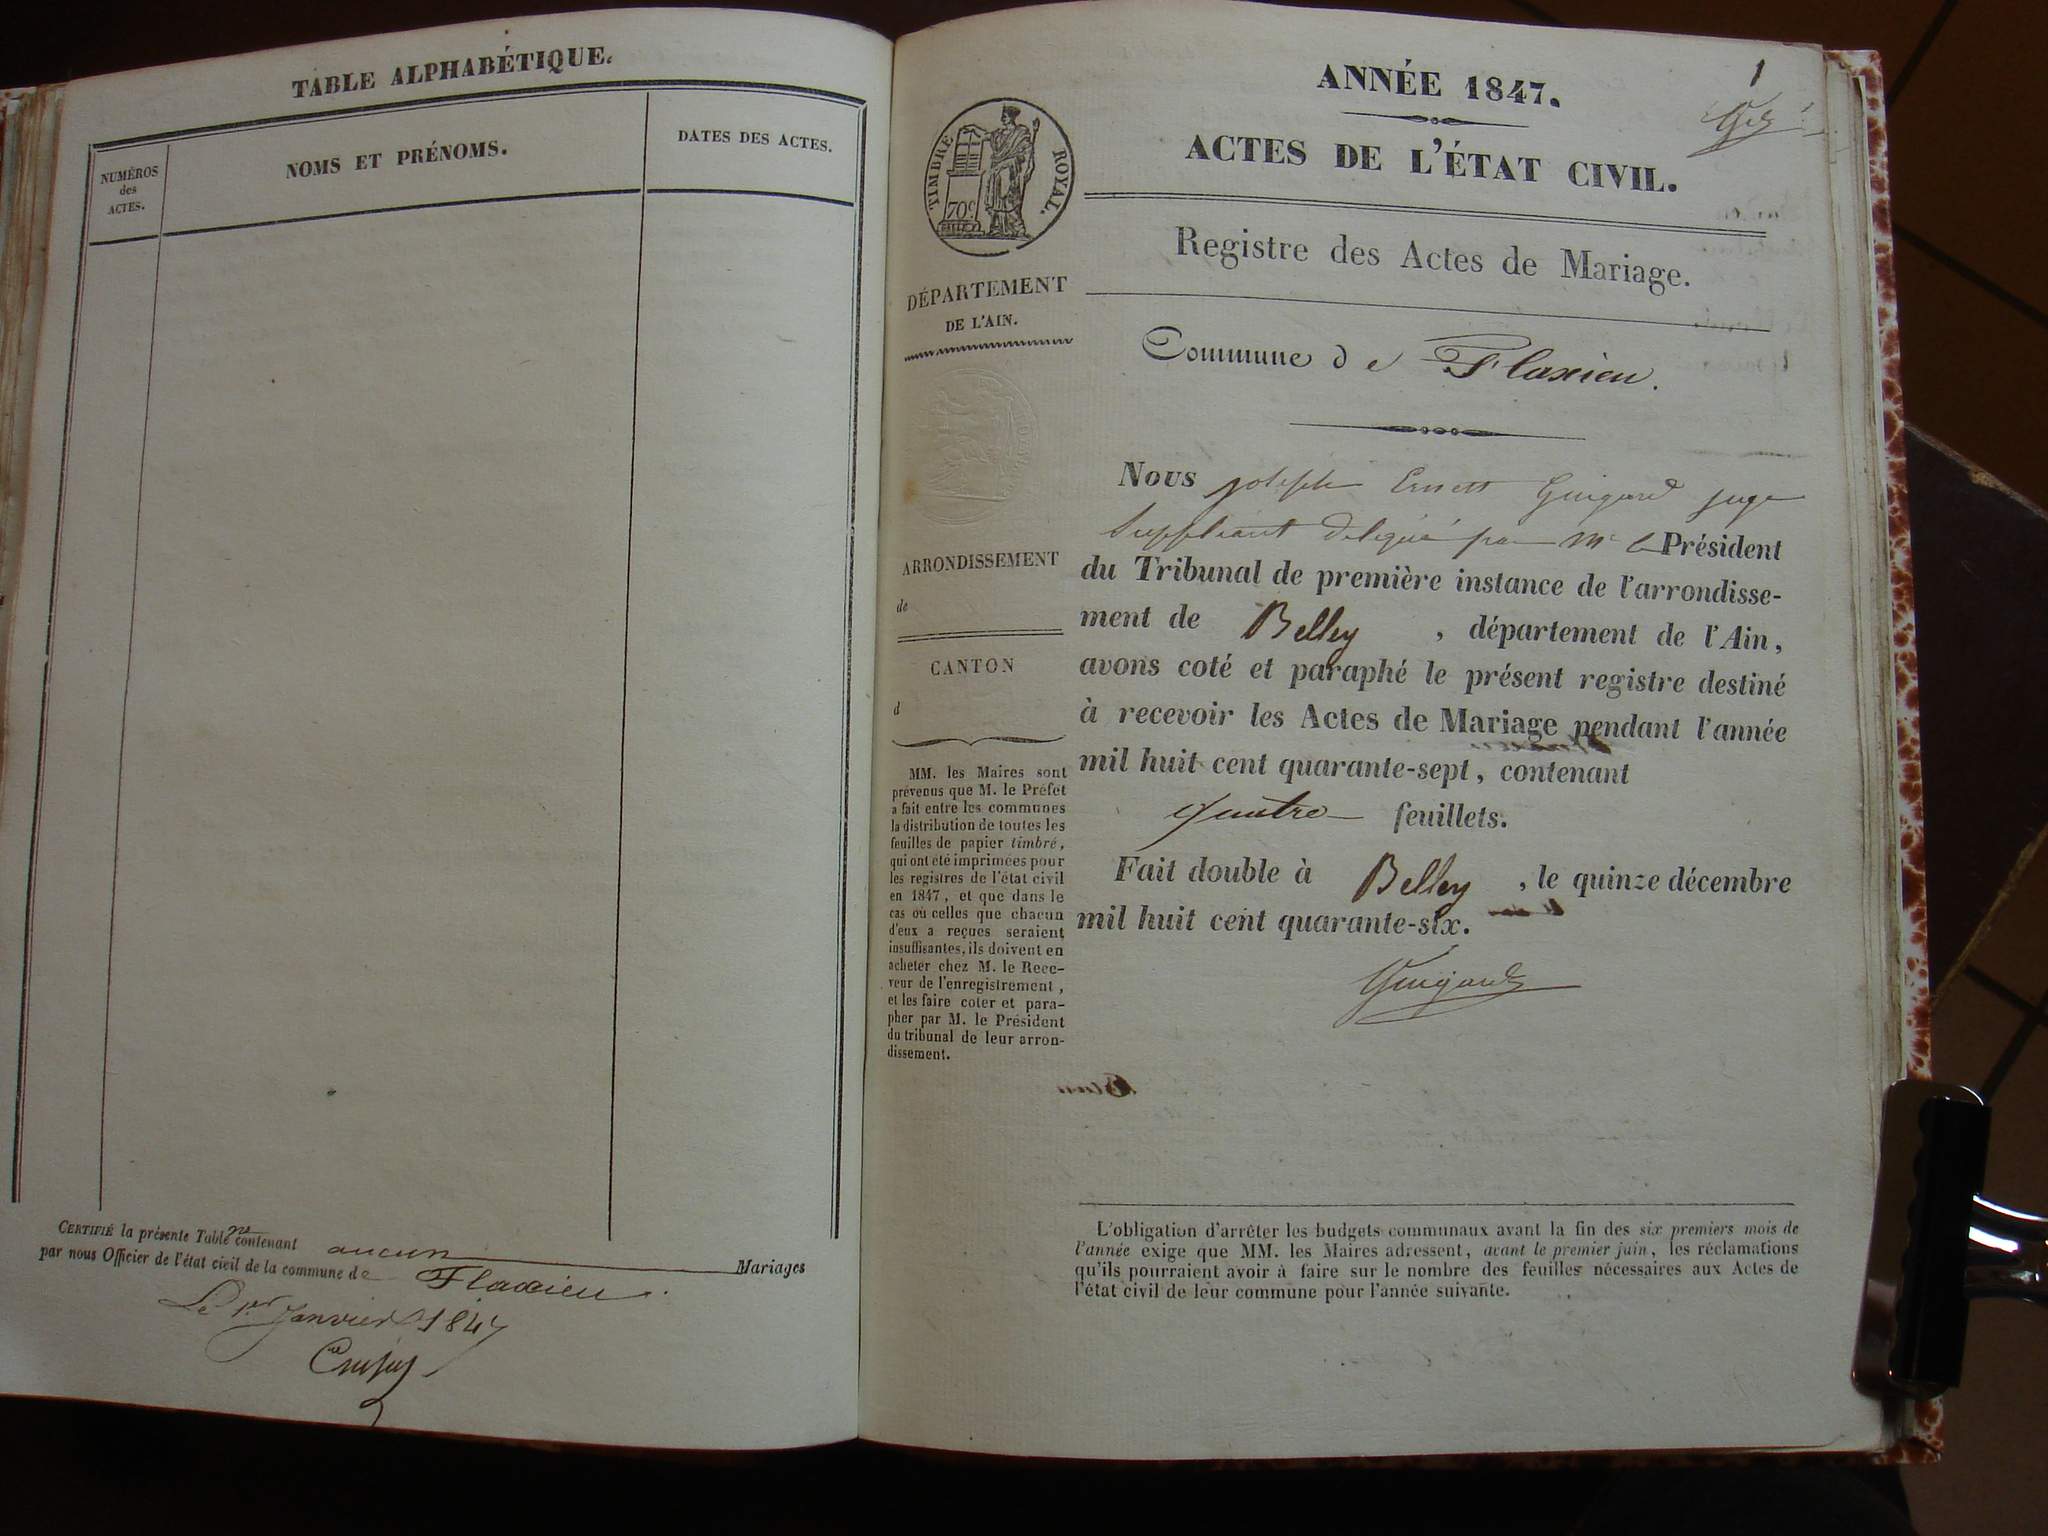 TABLE ALPHABÉTIQUE.
NUMÉROS
des
ACTES.
NOMS ET PRÉNOMS.
DATES DES ACTES.
CERTIFIÉ la présente Table ne contenant aucun Mariages
par nous Officier de l'état civil de la commune de Flaxieu.
Le 1er Janvier 1847
1
ANNÉE 1847.
ACTES DE L'ÉTAT CIVIL.
TIMBRE ROYAL.
70c
Registre des Actes de Mariage.
DÉPARTEMENT
DE L'AIN.
Commune de Flaxieu.
ARRONDISSEMENT
de
CANTON
d
MM. les Maires sont
prévenus que M. le Préfet
a fait entre les communes
la distribution de toutes les
feuilles de papier timbré,
qui ont été imprimées pour
les registres de l'état civil
en 1847, et que dans le
cas où celles que chacun
d'eux a reçues seraient
insuffisantes, ils doivent en
acheter chez M. le Rece-
veur de l'enregistrement,
et les faire coter et para-
pher par M. le Président
du tribunal de leur arron-
dissement.
Nous joseph Ernest Guigard juge
Suppléant délégué par Mr le Président
du Tribunal de première instance de l'arrondisse-
ment de Belley, département de l'Ain,
avons coté et paraphé le présent registre destiné
à recevoir les Actes de Mariage pendant l'année
mil huit cent quarante-sept, contenant
quatre feuillets.
Fait double à Belley, le quinze décembre
mil huit cent quarante-six.
Guigard
L'obligation d'arrêter les budgets communaux avant la fin des six premiers mois de
l'année exige que MM. les Maires adressent, avant le premier juin, les réclamations
qu'ils pourraient avoir à faire sur le nombre des feuilles nécessaires aux Actes de
l'état civil de leur commune pour l'année suivante.